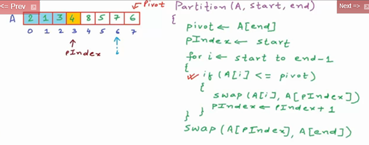 << Prev
Next >>
Pivot
A 2 1 3 4 8 5 7 6
0 1 2 3 4 5 6 7
pIndex i
Partition (A, start, end)
{
pivot ← A[end]
pIndex ← start
for i ← start to end-1
{ if (A[i] <= pivot)
{
swap (A[i], A[pIndex])
pIndex ← pIndex+1
} }
swap (A[pIndex], A[end])